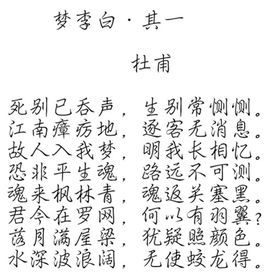 梦李白·其一
杜甫
死别已吞声，生别常恻恻。
江南瘴疠地，逐客无消息。
故人入我梦，明我长相忆。
恐非平生魂，路远不可测。
魂来枫林青，魂返关塞黑。
君今在罗网，何以有羽翼？
落月满屋梁，犹疑照颜色。
水深波浪阔，无使蛟龙得。